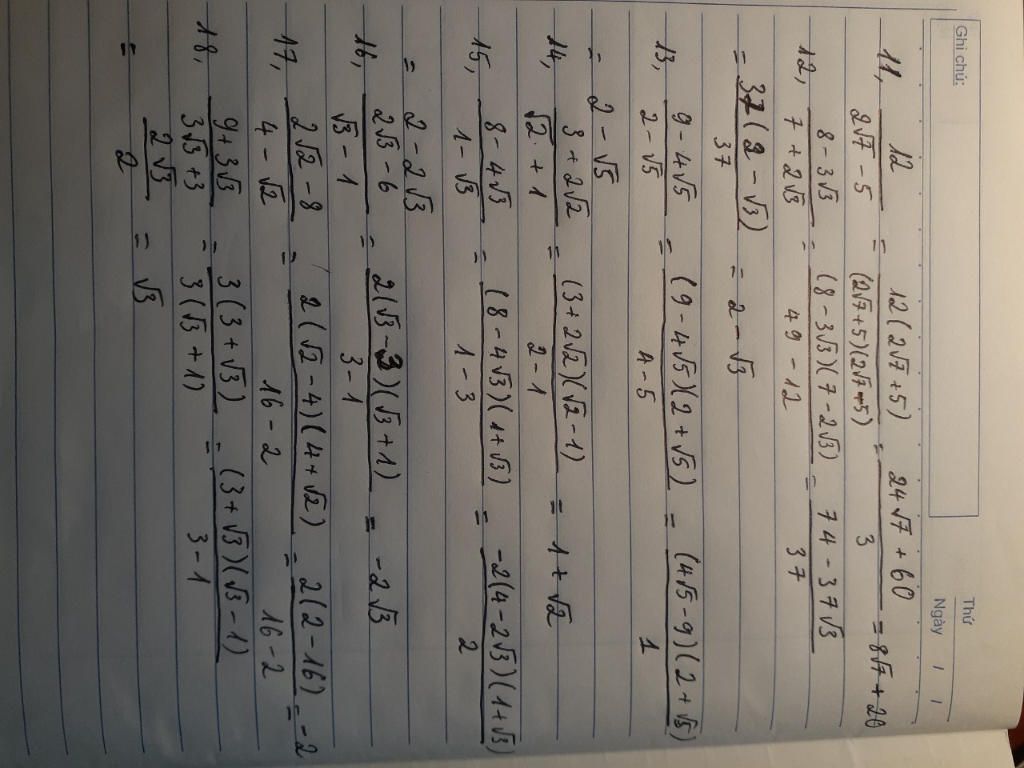 Ghi chú:
Thứ
Ngày / /
11, 12/(2√7 - 5) = 12(2√7 + 5)/((2√7+5)(2√7-5)) = (24√7 + 60)/3 = 8√7 + 20
12, (8 - 3√3)/(7 + 2√3) = (8 - 3√3)(7 - 2√3)/(49 - 12) = (74 - 37√3)/37
= 37(2 - √3)/37 = 2 - √3
13, (9 - 4√5)/(2 - √5) = (9 - 4√5)(2 + √5)/(4 - 5) = (4√5 - 9)(2 + √5)/1
= 2 - √5
14, (3 + 2√2)/(√2 + 1) = (3 + 2√2)(√2 - 1)/(2 - 1) = 1 + √2
15, (8 - 4√3)/(1 - √3) = (8 - 4√3)(1 + √3)/(1 - 3) = -2(4 - 2√3)(1 + √3)/2
= 2 - 2√3
16, (2√3 - 6)/(√3 - 1) = 2(√3 - 3)(√3 + 1)/(3 - 1) = -2√3
17, (2√2 - 8)/(4 - √2) = 2(√2 - 4)(4 + √2)/(16 - 2) = 2(2 - 16)/(16 - 2) = -2
18, (9 + 3√3)/(3√3 + 3) = 3(3 + √3)/(3(√3 + 1)) = (3 + √3)(√3 - 1)/(3 - 1)
= 2√3/2 = √3